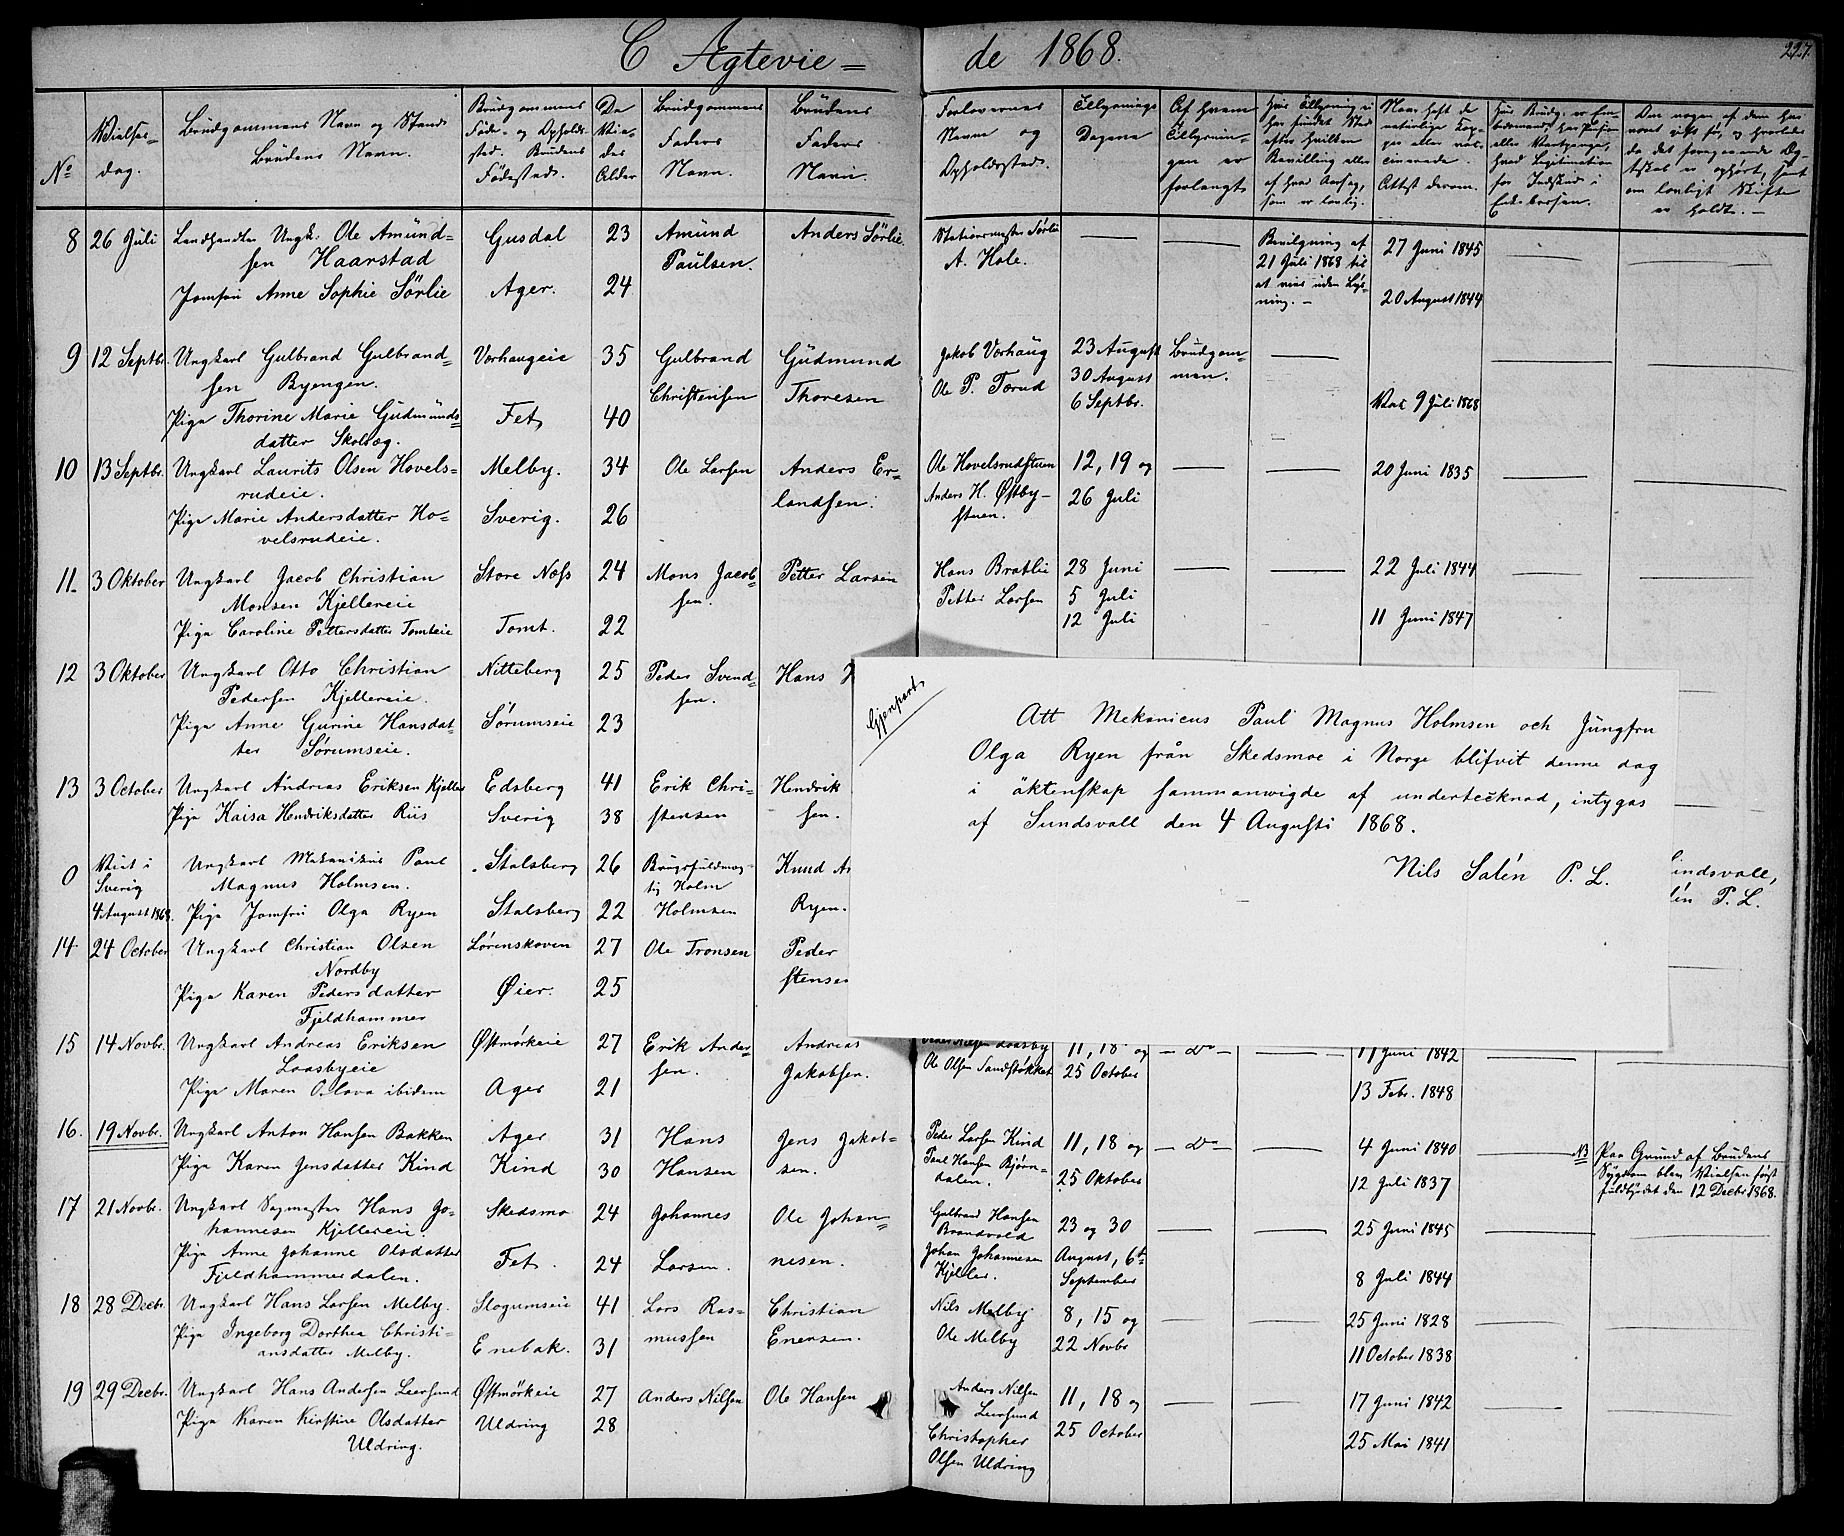 C Ægtevie= de 1868.
227.
No
Vielses-
dag.
Brudgommens Navn og Stand.
Brudens Navn.
Brudgommens
Føde- og Opholds-
sted. Brudens
Fødested.
De
Vie-
des
Alder
Brudgommens
Faders
Navn.
Brudens
Faders
Navn.
Forlovernes
Navn og
Opholdssted.
Tillysnings
Dagene
Af hvem
Tillysnin-
gen er
forlangt
8 26 Juli Landhandler Ungk. Ole Amund= Gusdal 23 Amund Anders Sørlie. Stationsmester Sørlie — — Bevilgning af 27 Juni 1845 — —
sen Haarstad Paulsen. A. Hole. 21 Juli 1868 til
Jomfru Anne Sophie Sörlie Ager. 24 at vies uden Lys-
ning. — 20 August 1844
9 12 Septbr. Ungkarl Gulbrand Gulbrand= Vorhaugeie 35 Gulbrand Gudmund Jakob Vorhaug 23 August Brudgom- — — —
sen Byengen. Christensen Thoresen Ole P. Torud 30 August men.
Pige Thorine Marie Gudmunds= Fet 40 6 Septbr. Vac 9 Juli 1868
datter Skolvog.
10 13 Septbr. Ungkarl Laurits Olsen Hovels= Melby. 34 Ole Larsen Anders Er- Ole Hovelsrudstuen 12, 19 og — — 20 Juni 1835 — —
rudeie. landsen. Anders H. Østby- 26 Juli
Pige Marie Andersdatter Ho= Sverig. 26 stuen.
velsrudeie.
11. 3 Oktober Ungkarl Jacob Christian Store Næss 24 Mons Jacob= Petter Larsen Hans Bratlie 28 Juni — — 22 Juli 1844 — —
Monsen Kjellereie sen. Petter Larsen 5 Juli
Pige Caroline Pettersdatter Tomteie Tomt. 22 12 Juli 11 Juni 1847
12 3 Oktober Ungkarl Otto Christian Nitteberg 25 Peder Svend= Hans
Pedersen Kjellereie. sen.
Pige Anne Gurine Hansdat= Sørumseie 23
ter Sørumseie.
13 3 October Ungkarl Andreas Eriksen Kjeller Edsberg 41 Erik Chri- Hendrik
Pige Kaisa Hendriksdatter Riis Sverig 38 stensen sen.
0 Viet i Ungkarl Mekanikus Paul Stalsberg 26 Brugsfuldmæg- Knud
Sverig Magnus Holmsen. tig Holm
4 August 1868. Pige Jomfru Olga Ryen Stalsberg 22 Holmsen Ryen.
14 24 October Ungkarl Christian Olsen Lørenskoven 27 Ole Tronsen Peder
Nordby
Pige Karen Pedersdatter Øier. 25
Fjeldhammer
Gjenpart.
Att Mekanicus Paul Magnus Holmsen och Jungfru
Olga Ryen från Skedsmoe i Norge blifvit denne dag
i äktenskap sammanwigde af undertecknad, intygas
af Sundsvall den 4 Augusti 1868.
Nils Salén P. L.
indsvall,
én P. L.
15 14 Novbr. Ungkarl Andreas Eriksen Østmørkeie 27 Erik Ander= Andreas 11, 18 og — do — — 17 Juni 1842 — —
Laasbyeie sen. Jakobsen. Ole Olsen Sandstøkket 25 October
Pige Maren Olava ibidem Ager 21 13 Febr. 1848
16. 19 Novbr. Ungkarl Anton Hansen Bakken Ager 31 Hans Jens Jakob= Peder Larsen Kind 11, 18 og — do — — 4 Juni 1840 — NB Paa Grund af Brudens
Pige Karen Jensdatter Kind Kind 30 Hansen sen. Paul Hansen Bjørn= 25 Oktober 12 Juli 1837 Sygdom blev Vielsen først
dalen. fuldbyrdet den 12 Decbr 1868.
17 21 Novbr. Ungkarl Sagmester Hans Jo= Skedsmo 24 Johannes Ole Johan= Gulbrand Hansen 23 og 30 — — 25 Juni 1845 — —
hannesen Kjellereie. Brandvold
Pige Anne Johanne Olsdatter Fet. 24 Larsen. nesen. Johan Johannesen August, 6te 8 Juli 1844
Fjeldhammerdalen. Kjeller. September
18 28 Decbr. Ungkarl Hans Larsen Melby. Slogumseie 41 Lars Ras= Christian Nils Melby 8, 15 og — — 25 Juni 1828 — —
Pige Ingeborg Dorthea Christi= Enebak. 31 mussen Enersen. Ole Melby 22 Novbr 11 October 1838
ansdatter Melby.
19 29 Decbr. Ungkarl Hans Andersen Leersund Østmørkeie 27 Anders Nilsen Ole Hansen Anders Nilsen 11, 18 og — — 17 Juni 1842 — —
Leersund
Pige Karen Kirstine Olsdatter Uldring 28 Christopher 25 October 25 Mai 1841
Uldring. Olsen Uldring